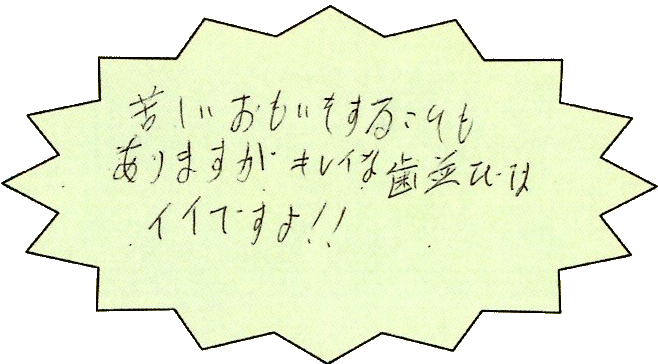 苦しいおもいをすることも
ありますが キレイな歯並びは
イイですよ!!